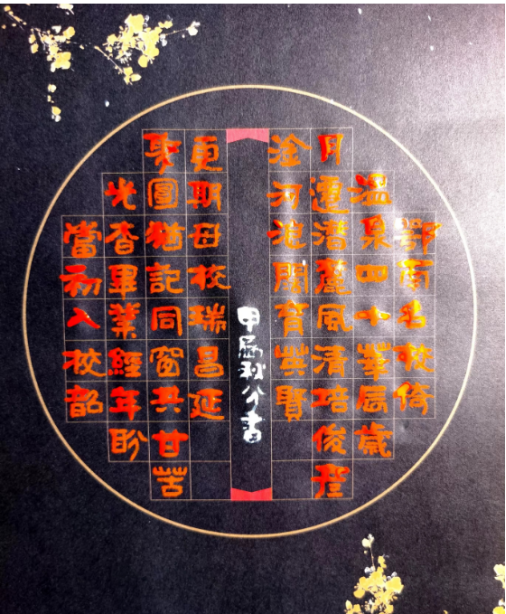 鄂南名校倚
溫泉四十華辰歲
月遷潛麓風清培俊
淦河闊育英賢
當初入校韶
光杳畢業經年盼
聚圓猶記同窗共甘苦
更期母校瑞昌延
甲辰秋分書